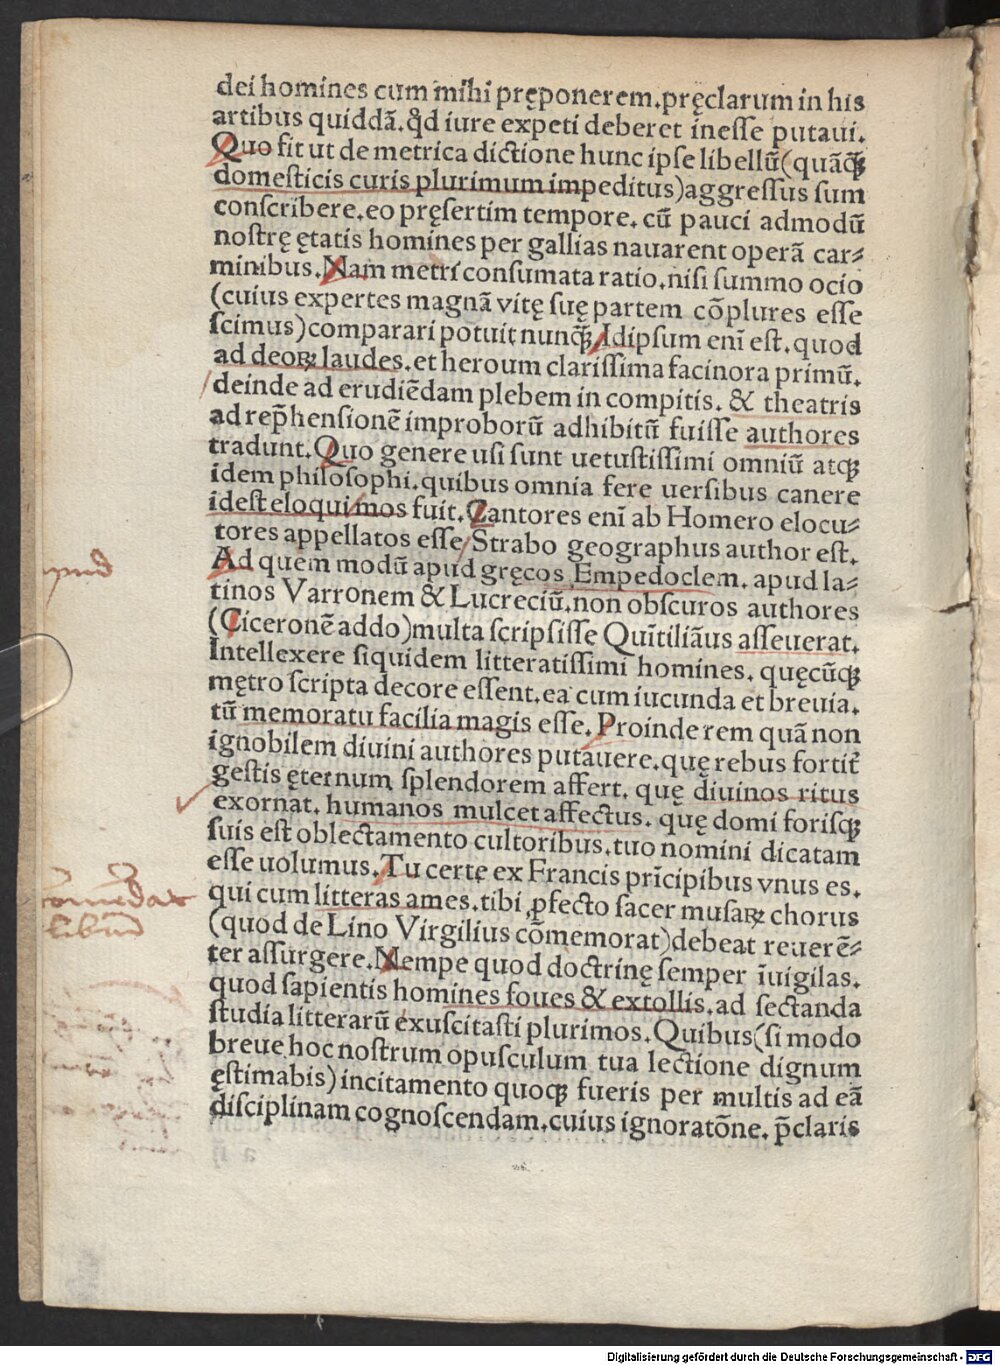 dei homines cum mihi pręponerem.pręclarum in his
artibus quiddã. qd̃ iure expeti deberet inesse putaui.
Quo fit ut de metrica dictione hunc ipse libellũ(quãꝗ̃
domesticis curis plurimum impeditus)aggressus sum
conscribere.eo pręsertim tempore. cũ pauci admodũ
nostrę ętatis homines per gallias nauarent operã car⸗
minibus.Nam metri consumata ratio.nisi summo ocio
(cuius expertes magnã vitę suę partem cõplures esse
scimus)comparari potuit nunꝗ̃.Idipsum enĩ est.quod
ad deoꝝ laudes.et heroum clarissima facinora primũ.
deinde ad erudiẽdam plebem in compitis. & theatris
ad rep̃hensionẽ improborũ adhibitũ fuisse authores
tradunt.Quo genere usi sunt uetustissimi omniũ atqꝫ
idem philosophi.quibus omnia fere uersibus canere
idest eloqui mos fuit.Cantores enĩ ab Homero elocu⸗
tores appellatos esse/Strabo geographus author est.
Ad quem modũ apud gręcos Empedoclem. apud la⸗
tinos Varronem & Lucreciũ.non obscuros authores
(Ciceronẽ addo)multa scripsisse Quĩtiliãus asseuerat.
Intellexere siquidem litteratissimi homines. quęcũqꝫ
mętro scripta decore essent.ea cum iucunda et breuia.
tũ memoratu facilia magis esse.Proinde rem quã non
ignobilem diuini authores putauere.quę rebus fortit̃
gestis ęternum splendorem affert. quę diuinos ritus
exornat. humanos mulcet affectus. quę domi forisqꝫ
suis est oblectamento cultoribus.tuo nomini dicatam
esse uolumus.Tu certe ex Francis prĩcipibus vnus es.
qui cum litteras ames.tibi ꝓfecto sacer musaꝝ chorus
(quod de Lino Virgilius cõmemorat)debeat reuerẽ⸗
ter assurgere.Nempe quod doctrinę semper ĩuigilas.
quod sapientis homines foues & extollis.ad sectanda
studia litterarũ exuscitasti plurimos.Quibus(si modo
breue hoc nostrum opusculum tua lectione dignum
ęstimabis)incitamento quoqꝫ fueris per multis ad eã
disciplinam cognoscendam.cuius ignoratõne. p̃claris
Digitalisierung gefördert durch die Deutsche Forschungsgemeinschaft - DFG